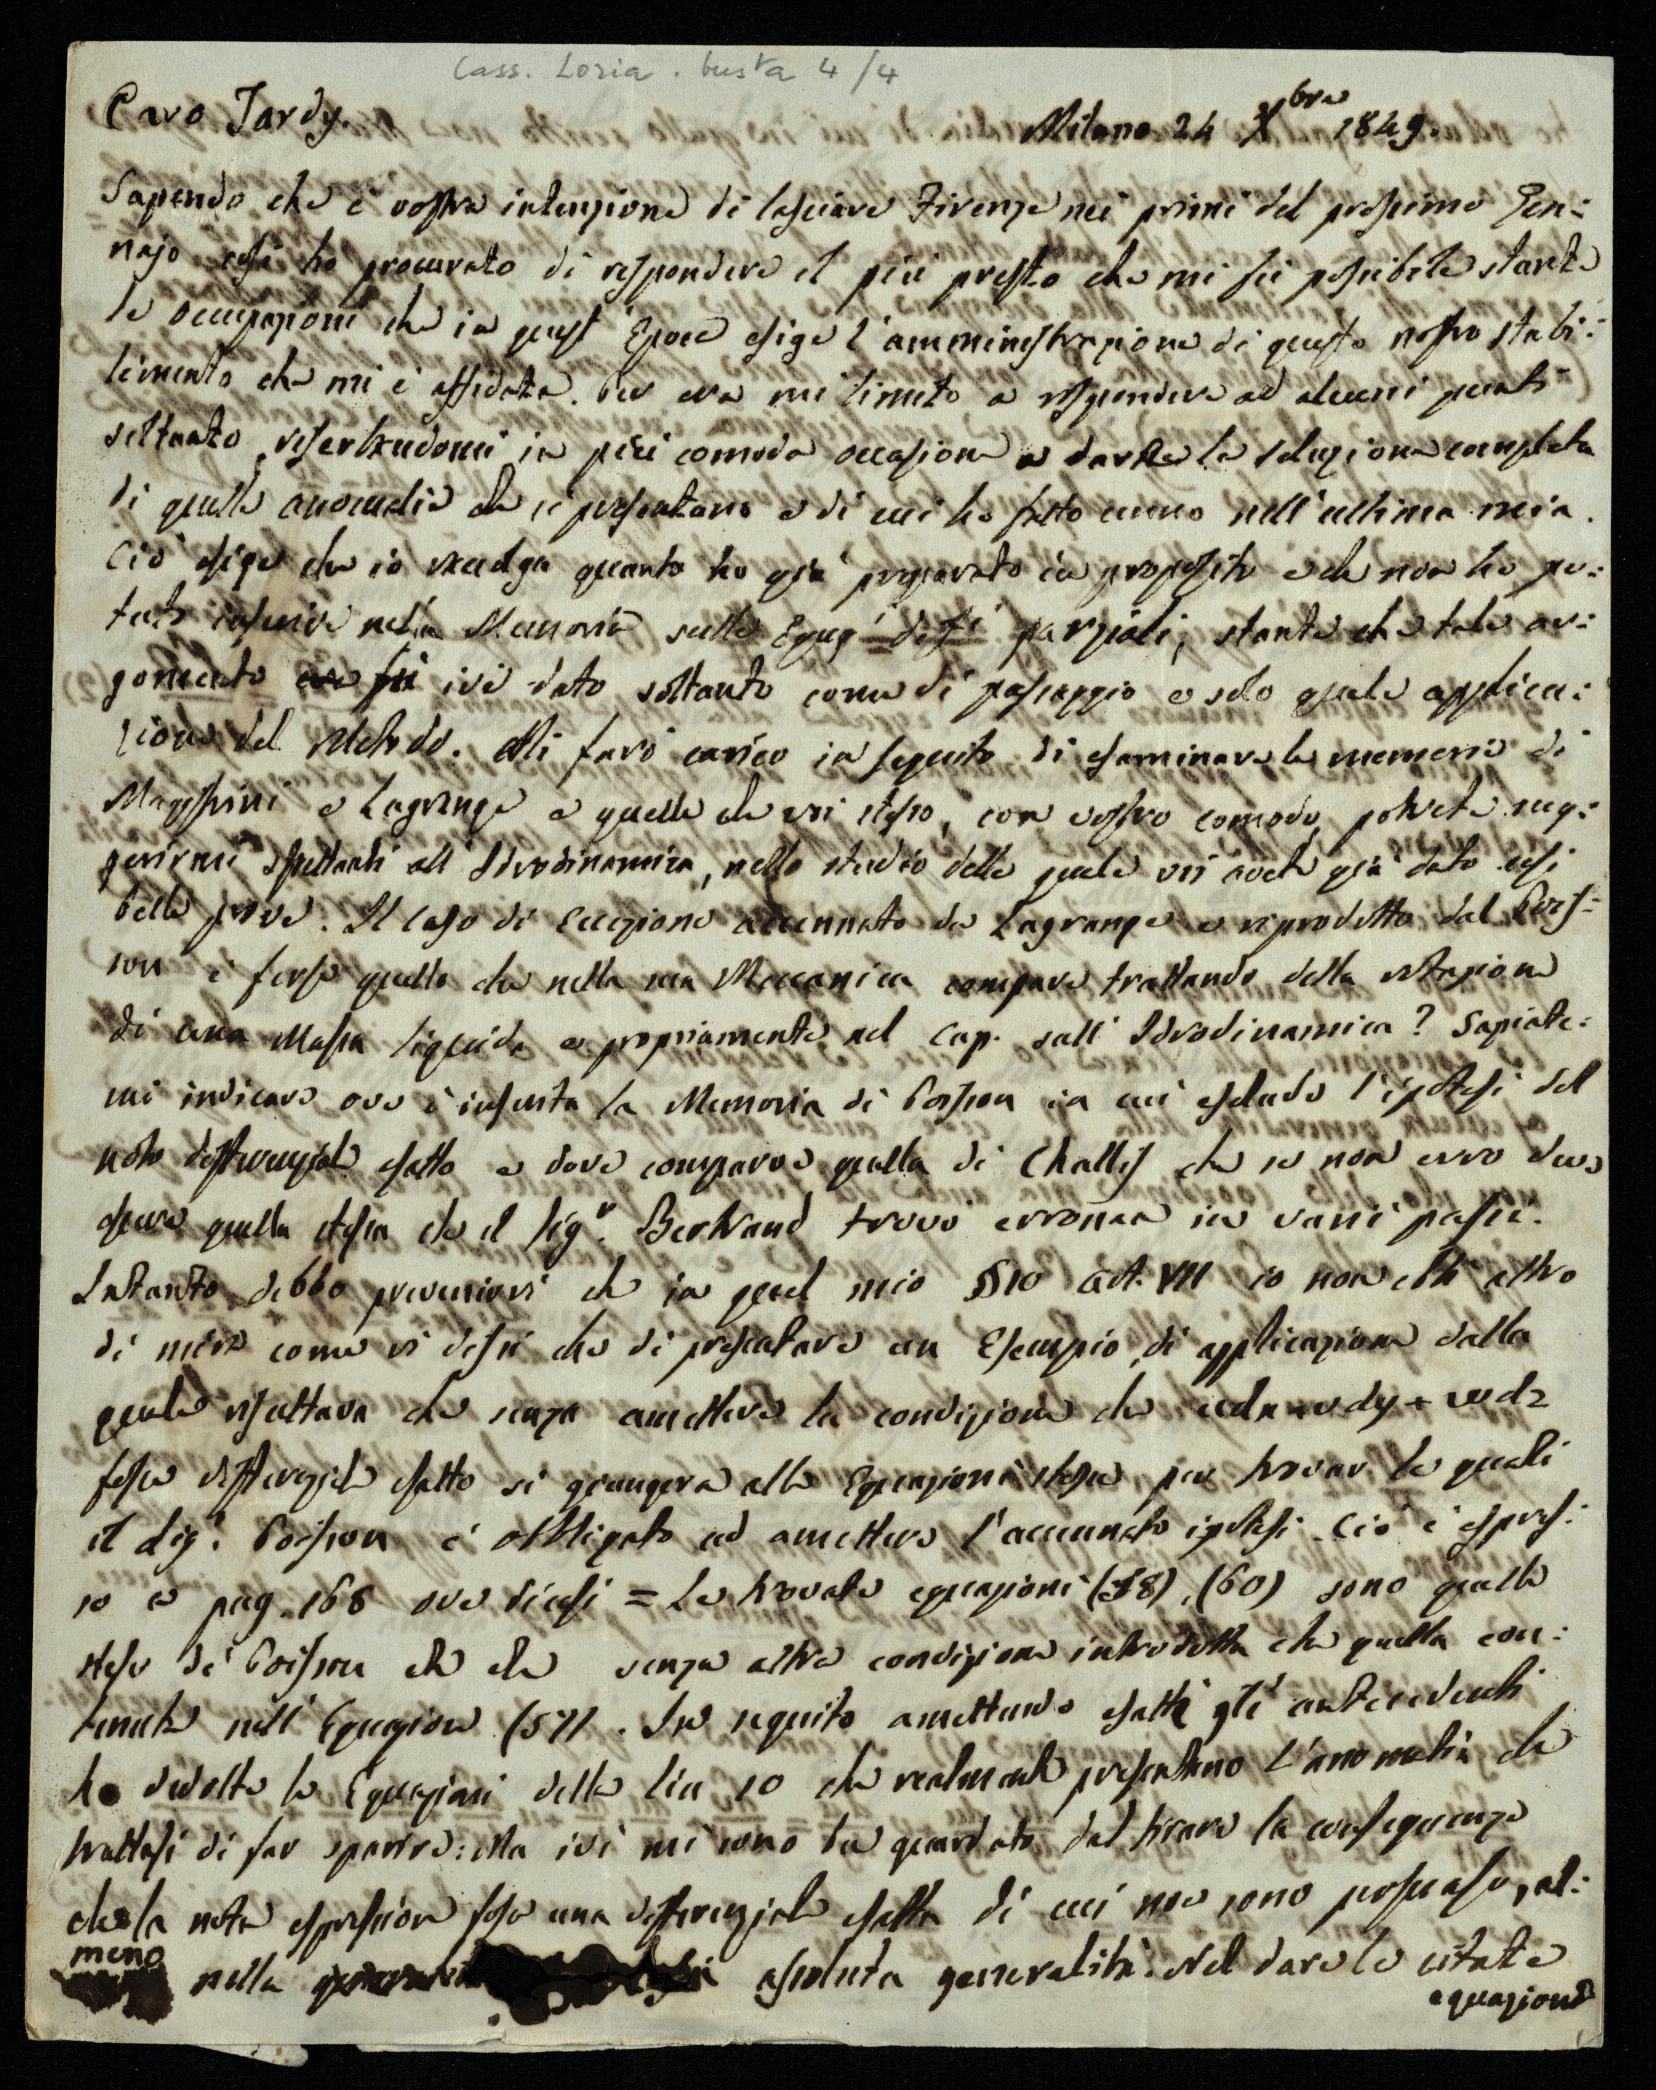 Cass. Loria. busta 4/4
Caro Tardy.
Milano 24 Xbre 1849.
Sapendo che è vostra intenzione di lasciare Firenze nei primi del prossimo Gen:
najo così ho procurato di rispondere il più presto che mi fu possibile stante
le occupazioni che in quest'Epoca esige l'amministrazione di questo nostro stabi:
limento che mi è affidata. Per ora mi limito a rispondere ad alcuni punti
soltanto, riserbandomi in più comoda occasione a dare la soluzione completa
di quelle anomalie che si presentano e di cui ho fatto cenno nell'ultima mia.
Ciò esige che io svolga quanto ho già preparato in proposito e che non ho po:
tuto inserire nella Memoria sulle Equaz.i diff.i parziali, stante che tale ar:
gomento fu ivi dato soltanto come di passaggio e solo quale applica:
zione del Metodo. Mi farò carico in seguito di esaminare le memorie di
Magistrini e Lagrange e quelle che voi stesso, con vostro comodo, potrete sug:
gerirmi spettanti all'Idrodinamica, nello studio della quale voi avete già dato così
belle prove. Il caso di Eccezione accennato da Lagrange e riprodotto dal Pois:
son è forse quello che nella sua Meccanica compare trattando della rotazione
di una Massa liquida e propriamente nel Cap. sull'Idrodinamica? Sapiate:
mi indicare ove è inserita la Memoria di Poisson in cui esclude l'ipotesi del
noto differenziale esatto e dove comparve quella di Challis che se non erro deve
essere quella stessa che il Sig.r Bertrand trovò erronea in varii passi.
Intanto debbo prevenirvi che in quel mio § 10 art. VII io non ebbi altro
di mira come vi dissi che di presentare un Esempio di applicazione dalla
quale risultava che senza ammettere la condizione che udx+vdy+wdz
fosse differenziale esatto si giungeva alle Equazioni stesse per trovar le quali
il Sig.r Poisson è obbligato ad amettere l'accennata ipotesi. Ciò è espres:
so a pag. 168 ove dicesi = Le trovate equazioni (58), (60) sono quelle
stesse di Poisson che senza altra condizione introdotta che quella con:
tenuta nell'Equazione (57). In seguito amettendo esatti gli antecedenti
ho dedotte le Equazioni della lin 10 che realmente presentano l'anomalia che
trattasi di far sparire: Ma ivi mi sono ben guardato dal tirare la conseguenza
che la nota espressione fosse una differenziale esatta di cui ne sono persuaso, al:
meno nella assoluta generalità. Nel dare le citate
equazioni